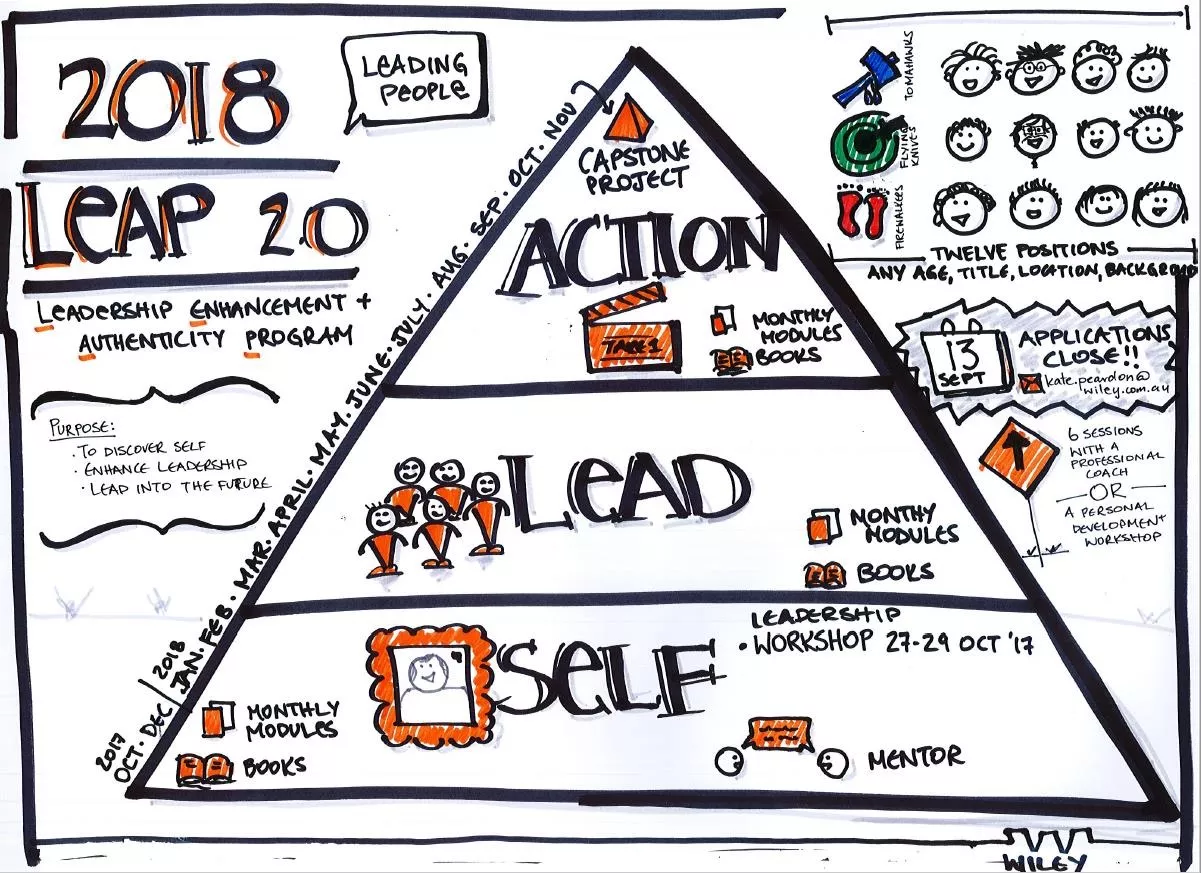 2018
LEAP 2.0
LEADERSHIP ENHANCEMENT +
AUTHENTICITY PROGRAM
PURPOSE:
· TO DISCOVER SELF
· ENHANCE LEADERSHIP
· LEAD INTO THE FUTURE
LEADING
PEOPLE
2017
OCT · DEC / 2018
JAN · FEB · MAR. APRIL · MAY. JUNE · JULY · AUG · SEP. OCT. NOV
CAPSTONE
PROJECT
ACTION
TAKE 1
MONTHLY
MODULES
BOOKS
LEAD
MONTHY
MODULES
BOOKS
SELF
LEADERSHIP
· WORKSHOP 27-29 OCT '17
MONTHLY
MODULES
BOOKS
MENTOR
TOMAHAWKS
FLYING
KNIVES
FIREWALKERS
TWELVE POSITIONS
ANY AGE, TITLE, LOCATION, BACKGROUND
13
SEPT
APPLICATIONS
CLOSE!!
kate.peardon@
wiley.com.au
6 SESSIONS
WITH A
PROFESSIONAL
COACH
OR
A PERSONAL
DEVELOPMENT
WORKSHOP
WILEY